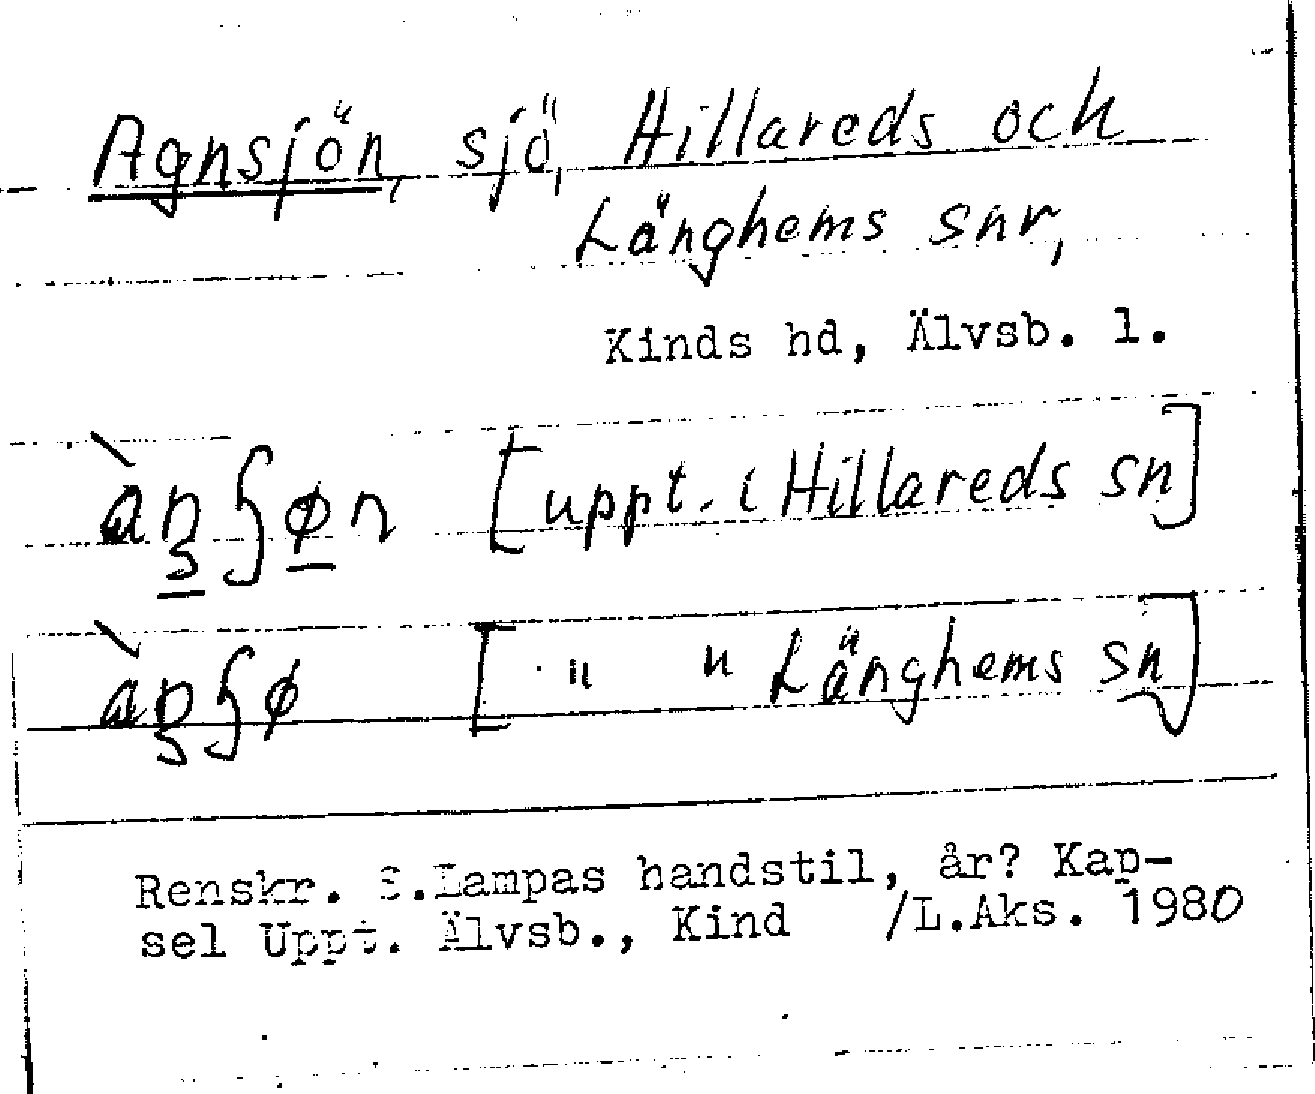 Agnsjön, sjö, Hillareds och
Länghems snr,
Kinds hd, Älvsb. l.
[uppt. i Hillareds sn]
[ " " Länghems sn]
Renskr. S.Lampas handstil, år? Kap-
sel Uppt. Älvsb., Kind /L.Aks. 1980